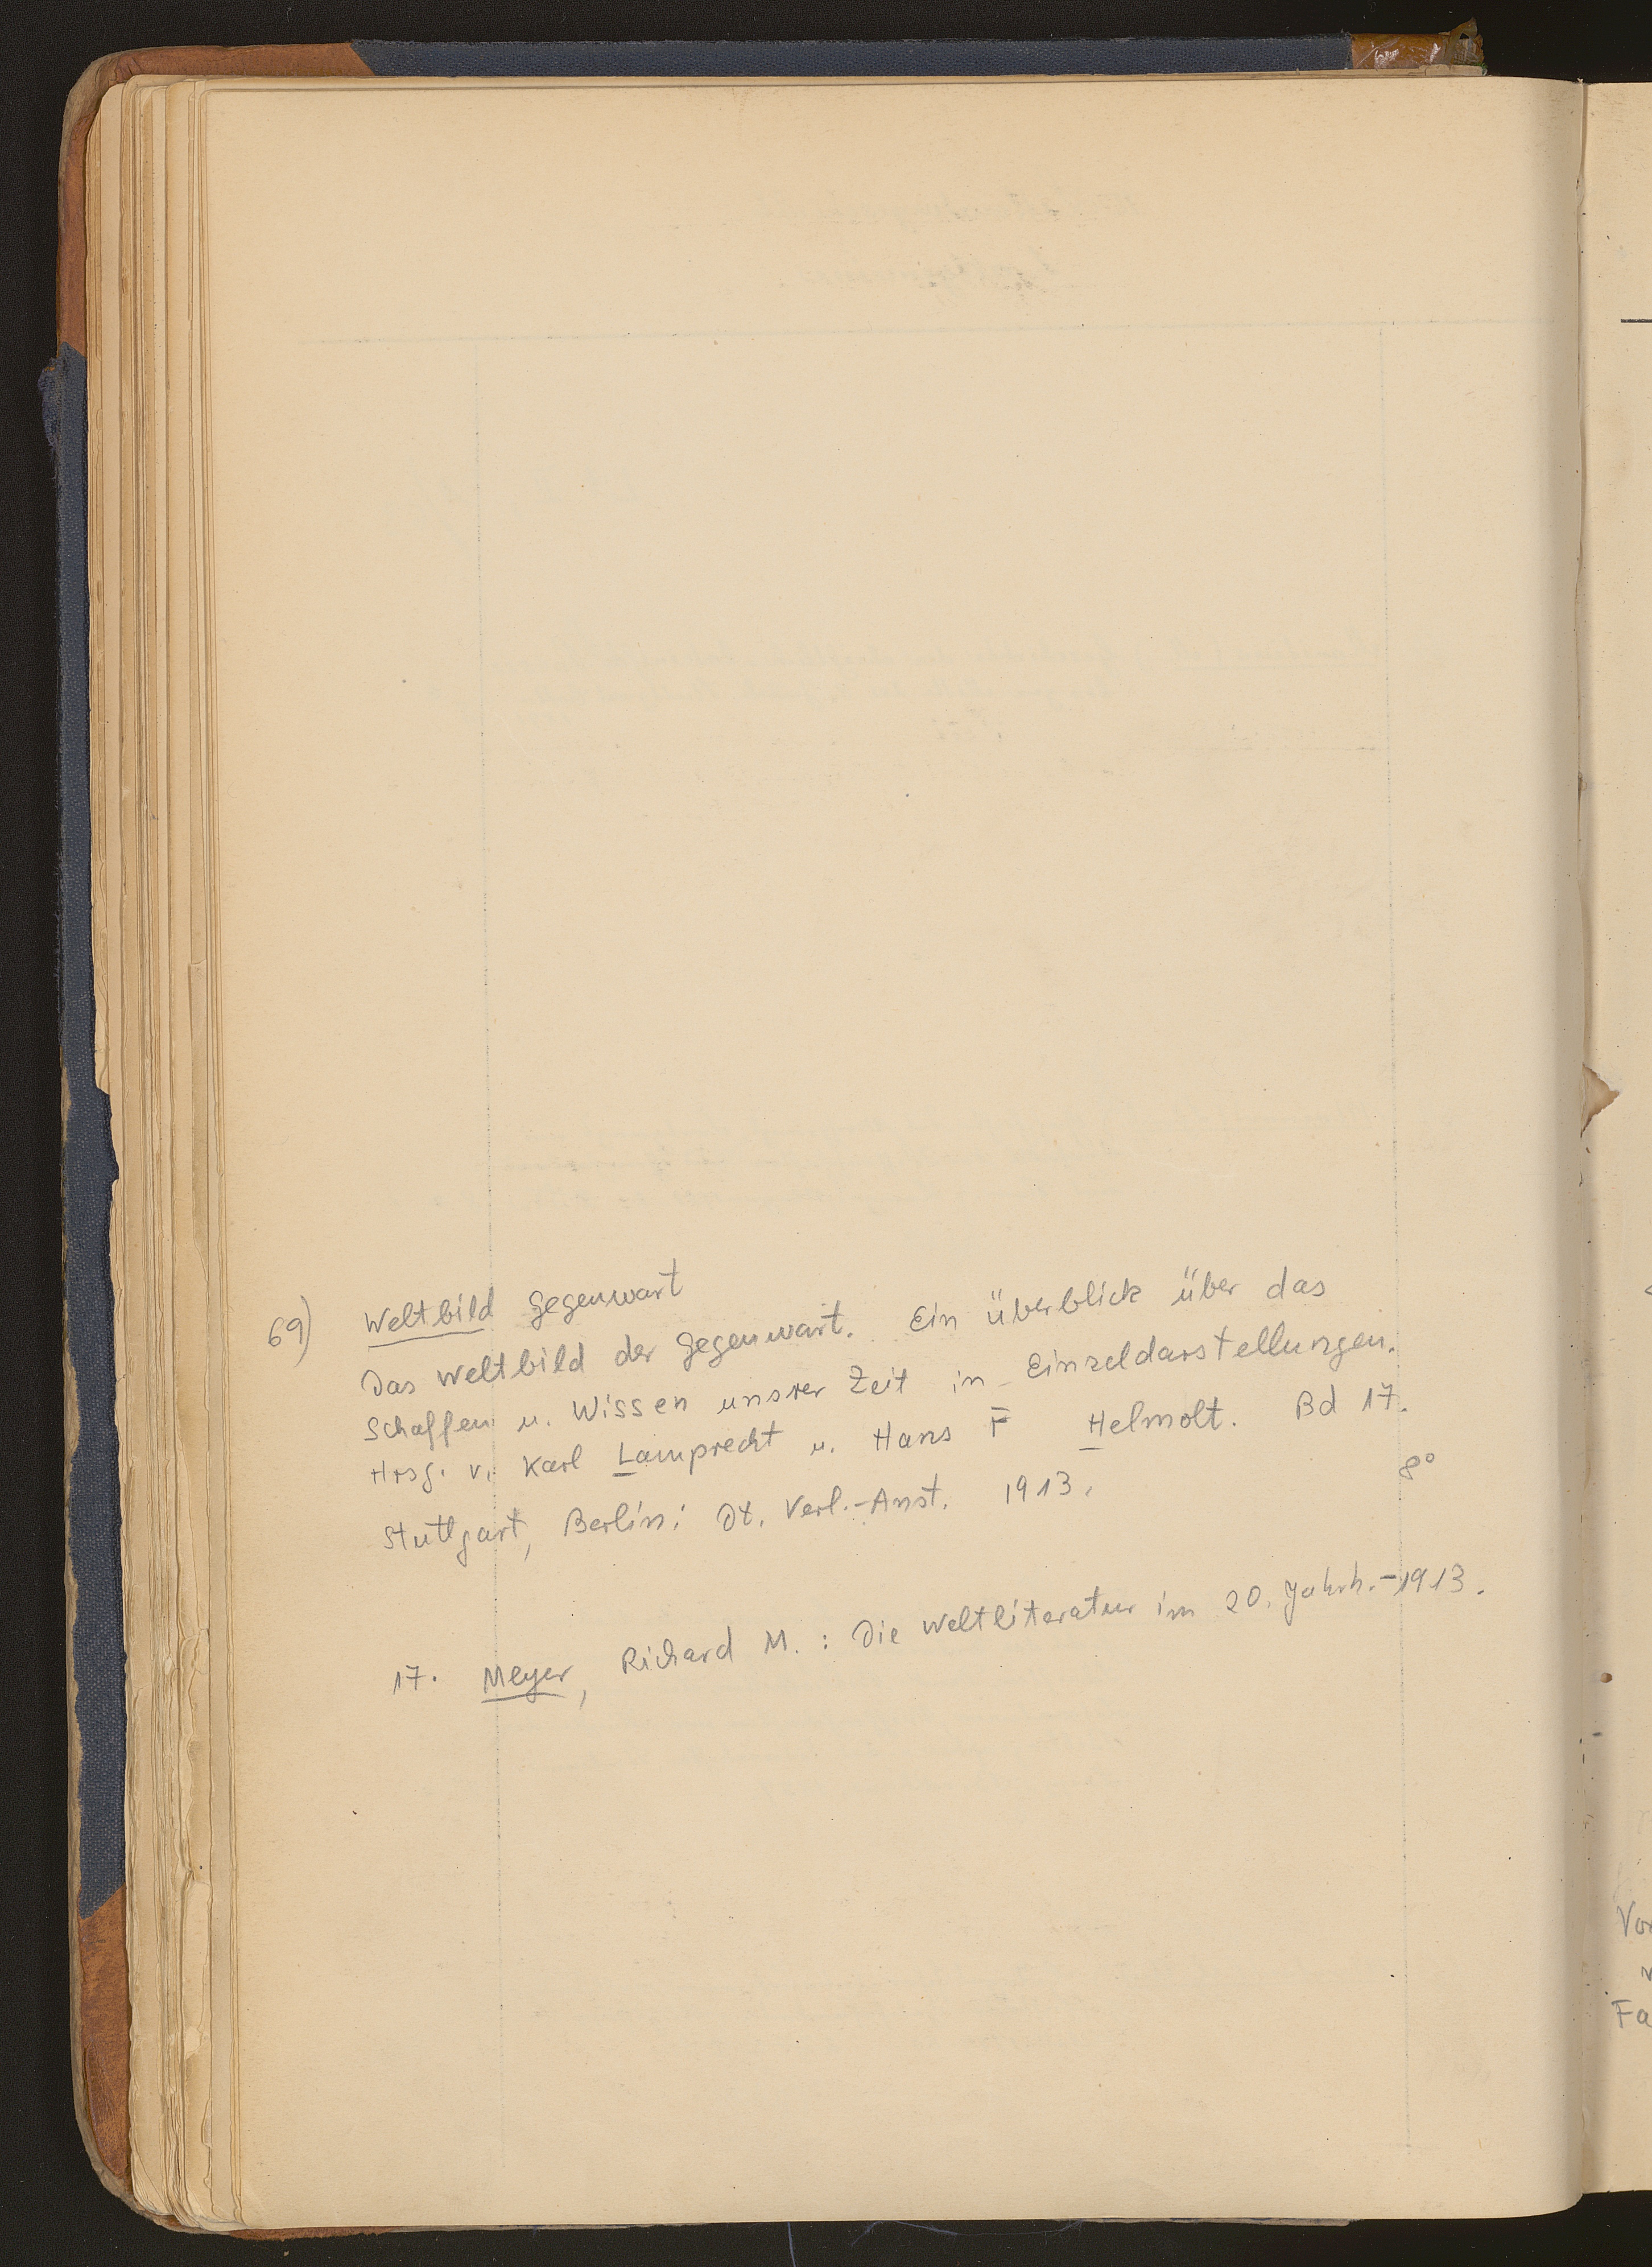 69) Weltbild Gegenwart
Das Weltbild der Gegenwart. Ein Überblick über das
Schaffen u. Wissen unsrer Zeit in Einzeldarstellungen.
Hrsg. v. Karl Lamprecht u. Hans F Helmolt. Bd 17.
Stuttgart, Berlin: Dt. Verl.-Anst. 1913. 8°
17. Meyer, Richard M.: Die Weltliteratur im 20. Jahrh. - 1913.
Vor
Fa